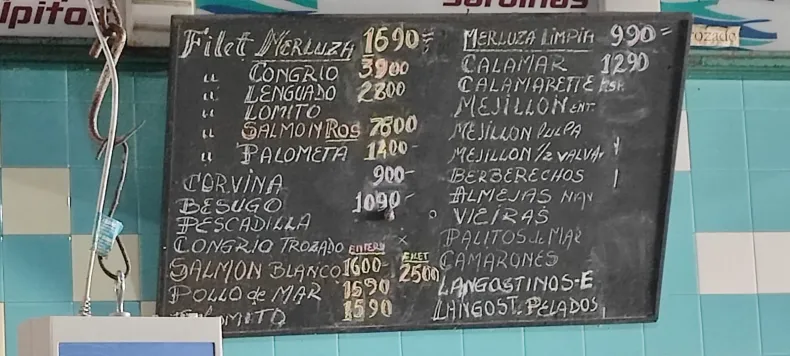 lpitos
Sardinas
rozado
Filet MERLUZA 1690=
" CONGRIO 3900
" LENGUADO 2800
" LOMITO
" SALMON ROS 7800
" PALOMETA 1400-
CORVINA 900-
BESUGO 1090-
PESCADILLA
CONGRIO TROZADO ENTERO
SALMON BLANCO 1600- FILET 2500
POLLO de MAR 1590
LOMITO 1590
MERLUZA LIMPIA 990=
CALAMAR 1290
CALAMARETTE ESP.
MEJILLON ENT.
MEJILLON PULPA
MEJILLON 1/2 VALVA
BERBERECHOS
ALMEJAS NAY
VIEIRAS
PALITOS de MAR
CAMARONES
LANGOSTINOS-E
LANGOST. PELADOS